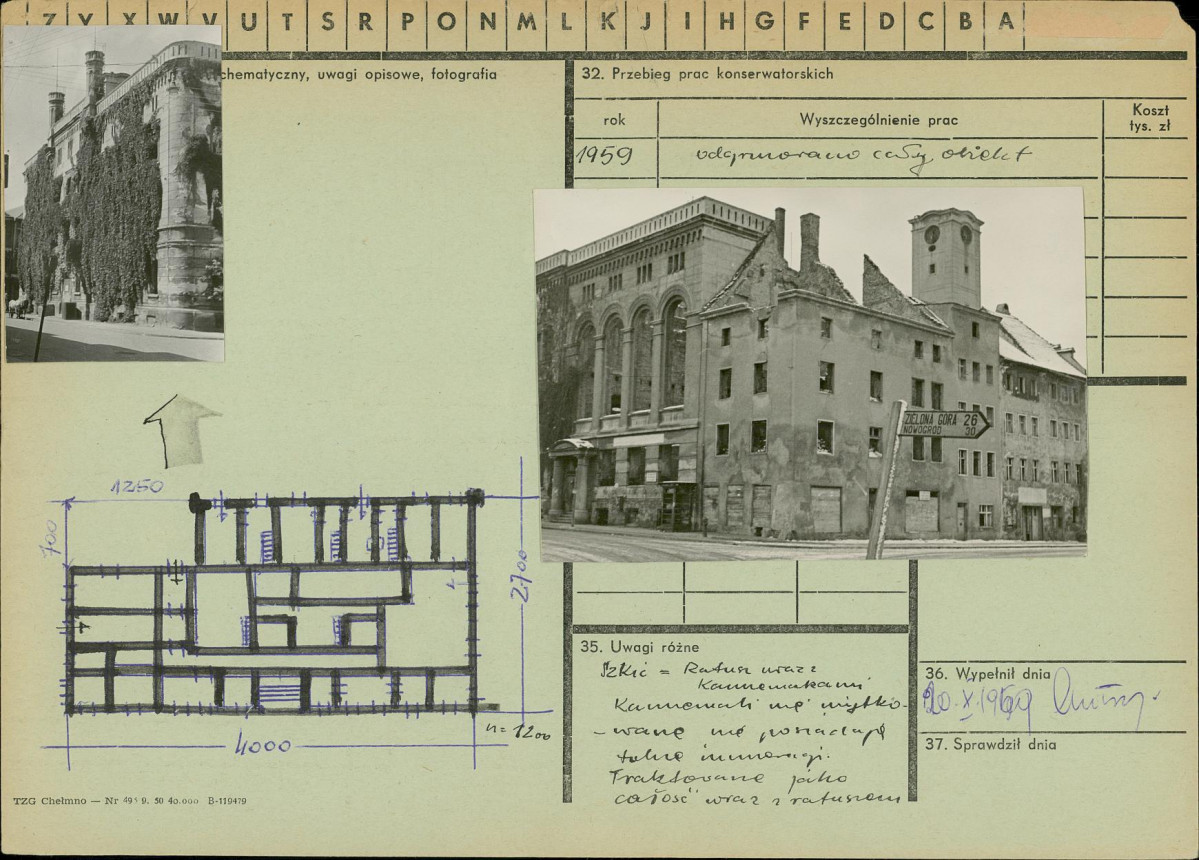 Z Y X W V U T S R P O N M L K J I H G F E D C B A
chematyczny, uwagi opisowe, fotografia
32. Przebieg prac konserwatorskich
rok
Wyszczególnienie prac
Koszt
tys. zł
1959
odgruzowano cały obiekt
ZIELONA GÓRA 26
NOWOGRÓD 30
1250
700
2700
4000
h = 1200
35. Uwagi różne
Szkic = Ratusz wraz z
Kamienicami
Kamienice nie
wane nie posiadają
Traktowane jako
całość wraz z ratuszem
36. Wypełnił dnia
20.X.1959
37. Sprawdził dnia
TZG Chełmno — Nr 495 9. 50 40.000 B-119479